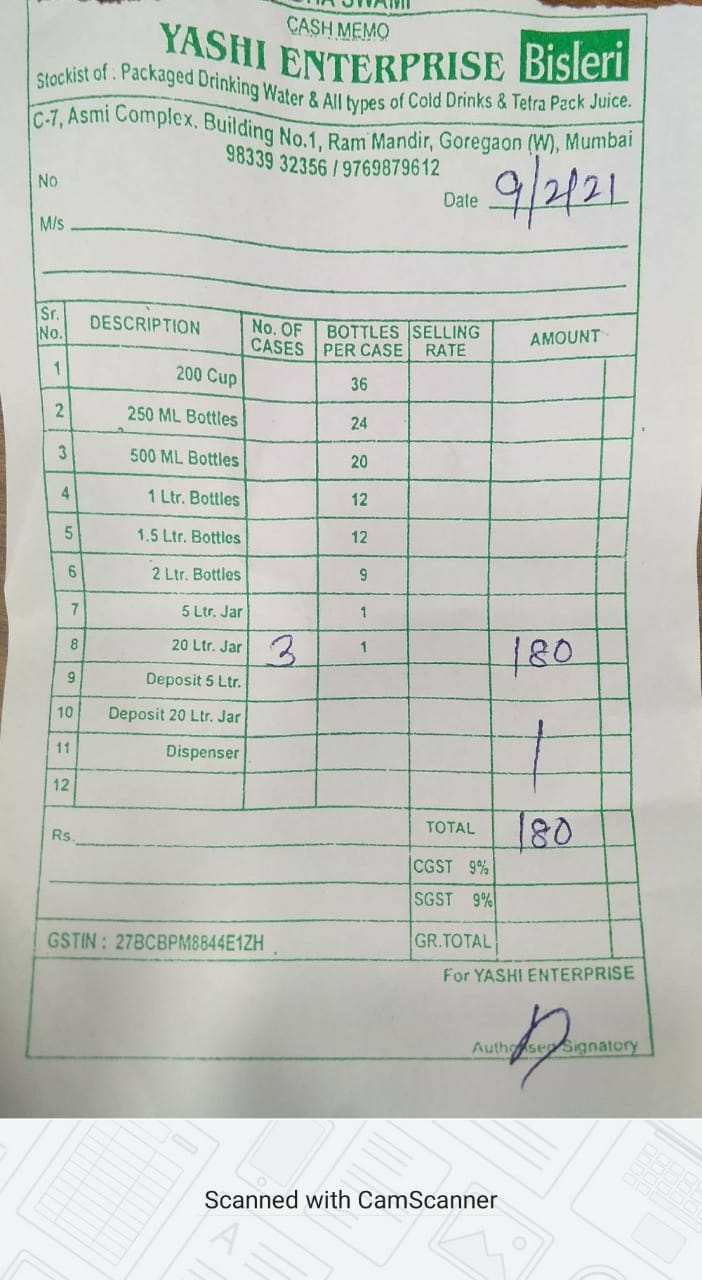 CASH MEMO
YASHI ENTERPRISE Bisleri
Stockist of : Packaged Drinking Water & All types of Cold Drinks & Tetra Pack Juice.
C-7, Asmi Complex, Building No.1, Ram Mandir, Goregaon (W), Mumbai
98339 32356 / 9769879612
No
Date 9/2/21
M/s
Sr. No. DESCRIPTION No. OF CASES BOTTLES PER CASE SELLING RATE AMOUNT
1 200 Cup 36
2 250 ML Bottles 24
3 500 ML Bottles 20
4 1 Ltr. Bottles 12
5 1.5 Ltr. Bottles 12
6 2 Ltr. Bottles 9
7 5 Ltr. Jar 1
8 20 Ltr. Jar 3 1 180
9 Deposit 5 Ltr.
10 Deposit 20 Ltr. Jar
11 Dispenser
12
Rs. TOTAL 180
CGST 9%
SGST 9%
GSTIN : 27BCBPM8844E1ZH GR.TOTAL
For YASHI ENTERPRISE
Authorised Signatory
Scanned with CamScanner